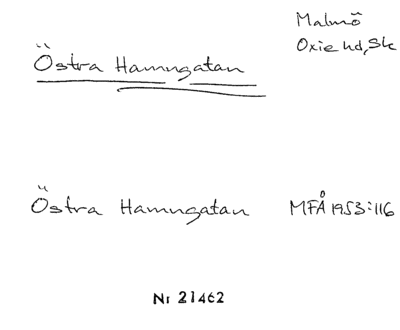 Östra Hamngatan
Malmö
Oxie hd, Sk
Östra Hamngatan MFÅ 1953:116
Nr 21462